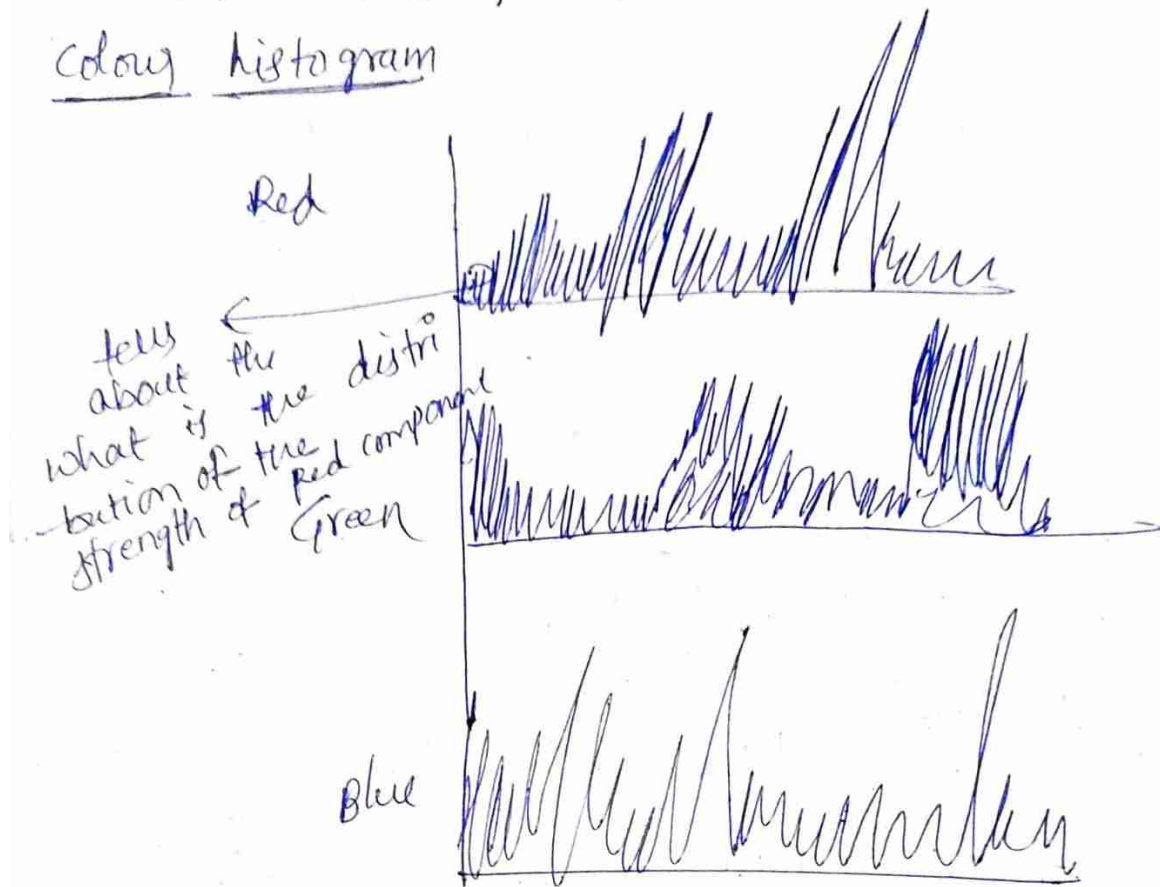 Colour histogram
Red
tells
about the
what is the distri
bution of the
strength of Red component
Green
Blue